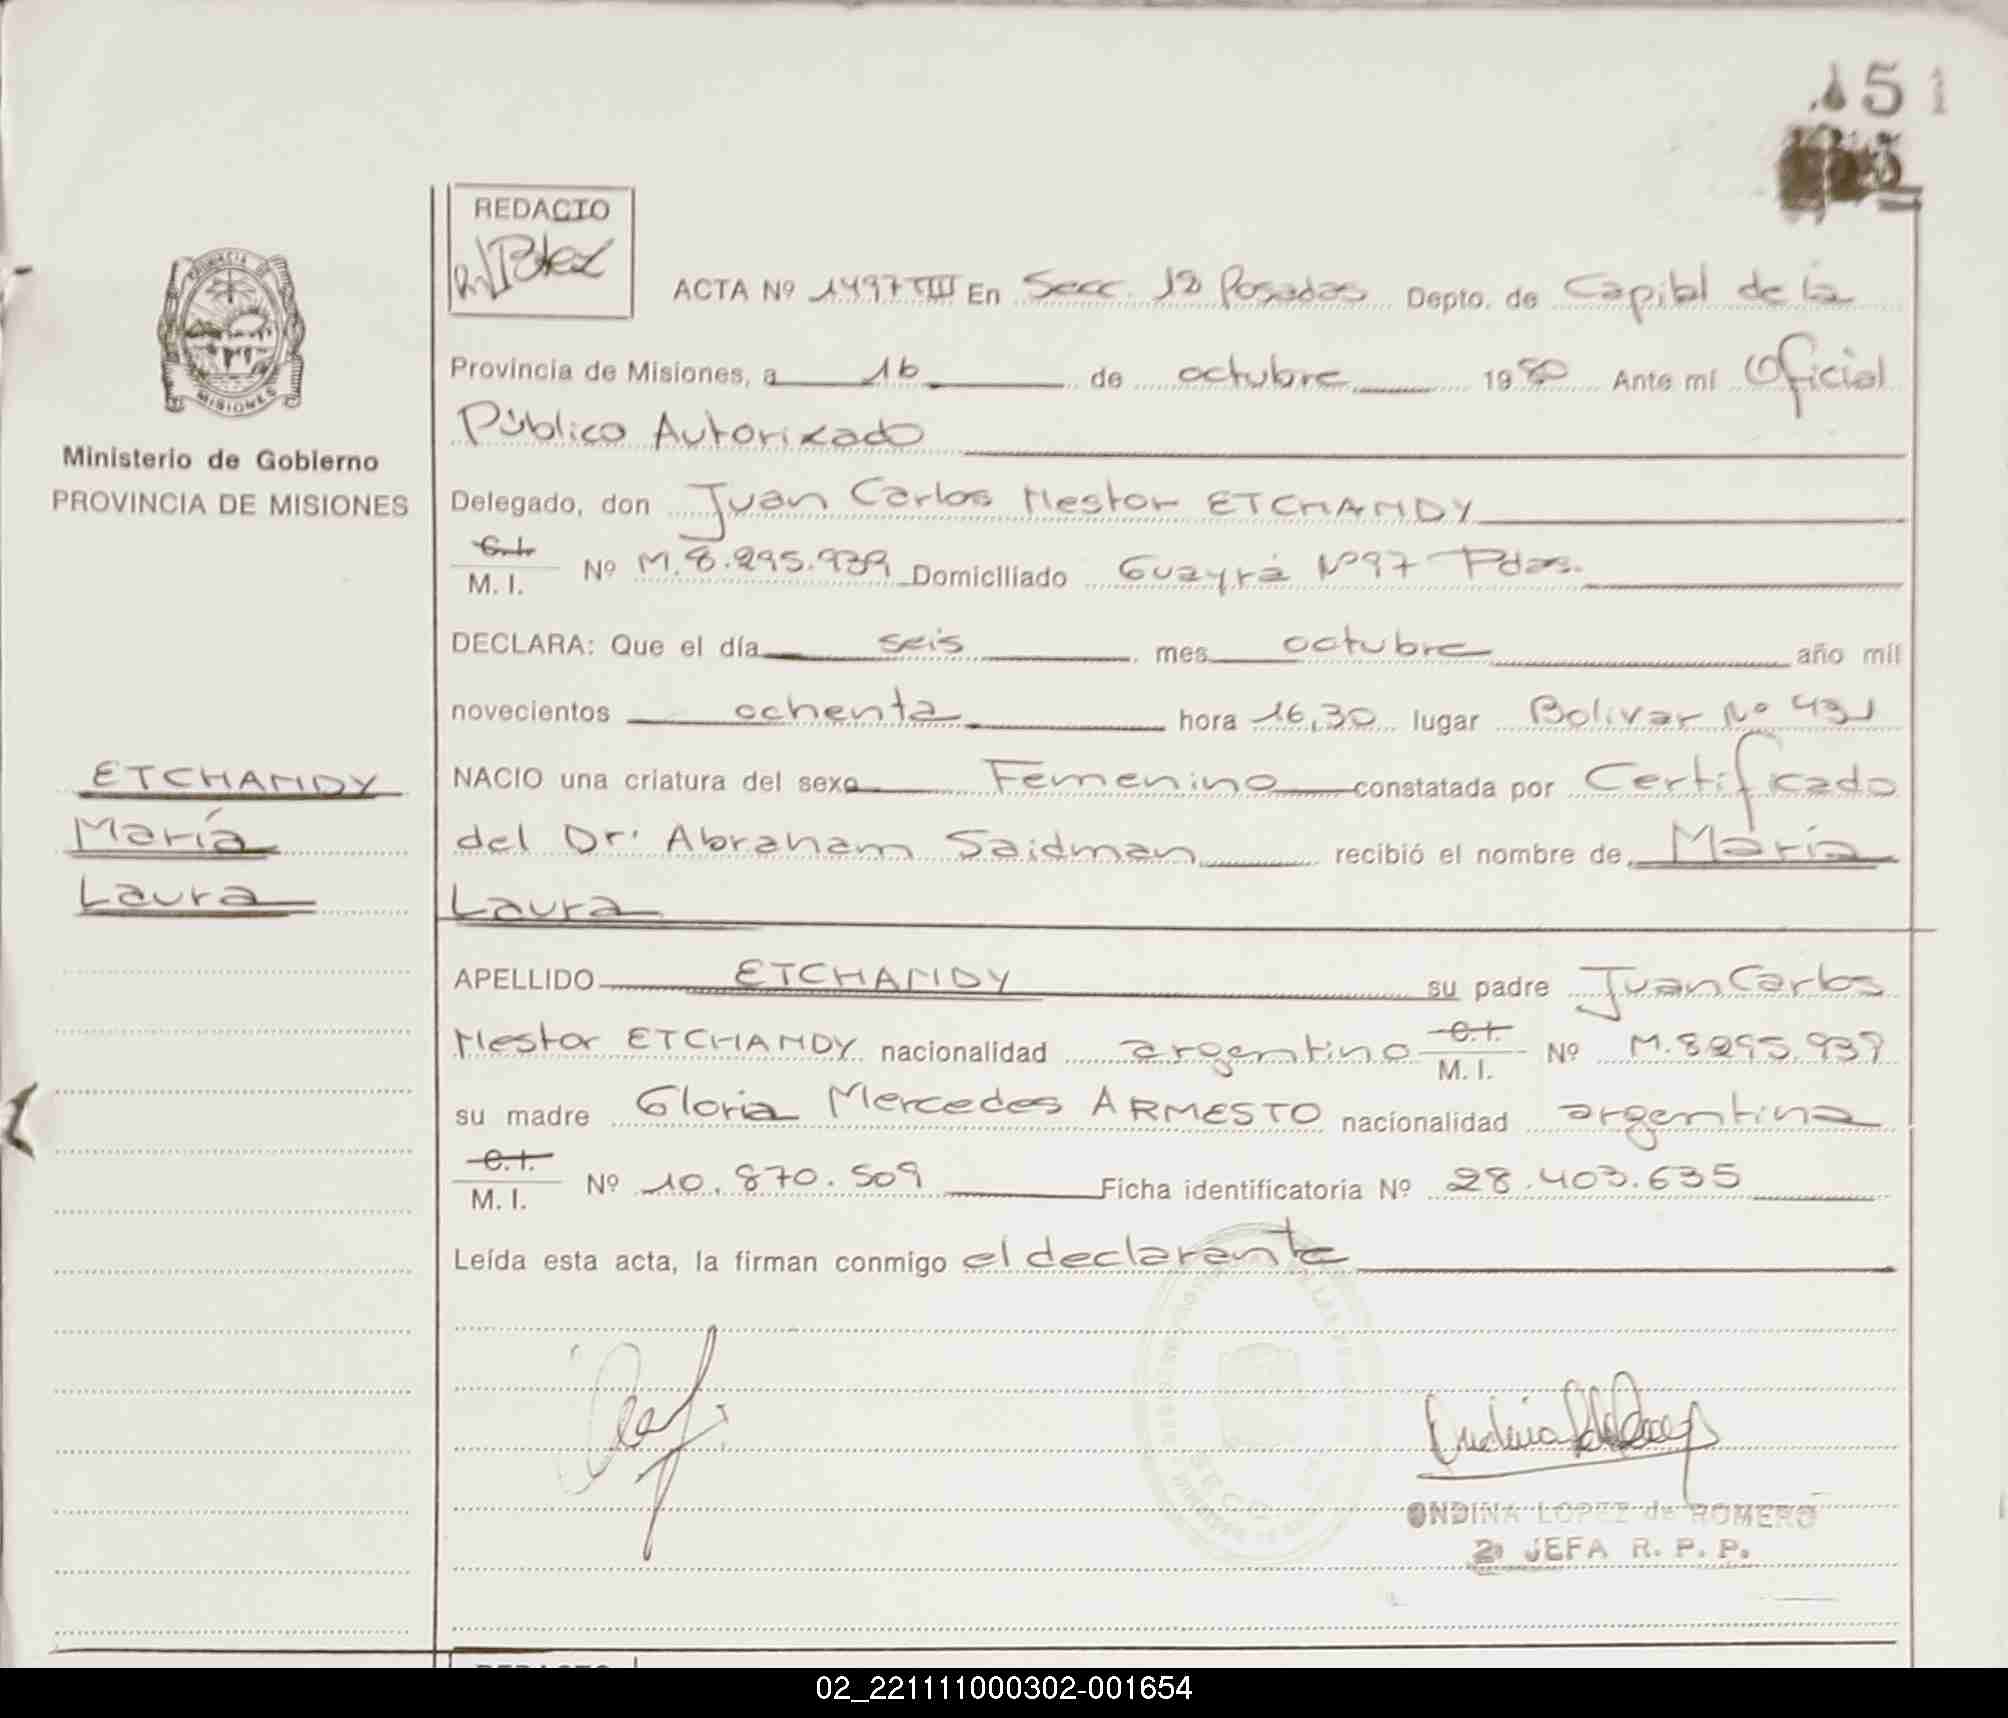 151
REDACTO
ACTA Nº 1497 TIII En Secc. 1ª Posadas Depto. de Capital de la
PROVINCIA DE
MISIONES
Provincia de Misiones, a 16 de octubre 1980 Ante mí Oficial
Público Autorizado
Ministerio de Gobierno
PROVINCIA DE MISIONES
Delegado, don Juan Carlos Nestor ETCHANDY
C.I.
M. I. Nº M.8.295.939 Domiciliado Guayrá Nº97 Pdas.
DECLARA: Que el día seis mes octubre año mil
novecientos ochenta hora 16,30 lugar Bolivar No 491
ETCHANDY
María
Laura
NACIO una criatura del sexo Femenino constatada por Certificado
del Dr. Abraham Saidman recibió el nombre de María
Laura
APELLIDO ETCHANDY su padre Juan Carlos
Nestor ETCHANDY nacionalidad argentino C.I.
M. I. Nº M.8295.939
su madre Gloria Mercedes ARMESTO nacionalidad argentina
C.I.
M. I. Nº 10.870.509 Ficha identificatoria Nº 28.403.635
Leída esta acta, la firman conmigo el declarante
ONDINA LOPEZ de ROMERO
JEFA R. P. P.
02_221111000302-001654